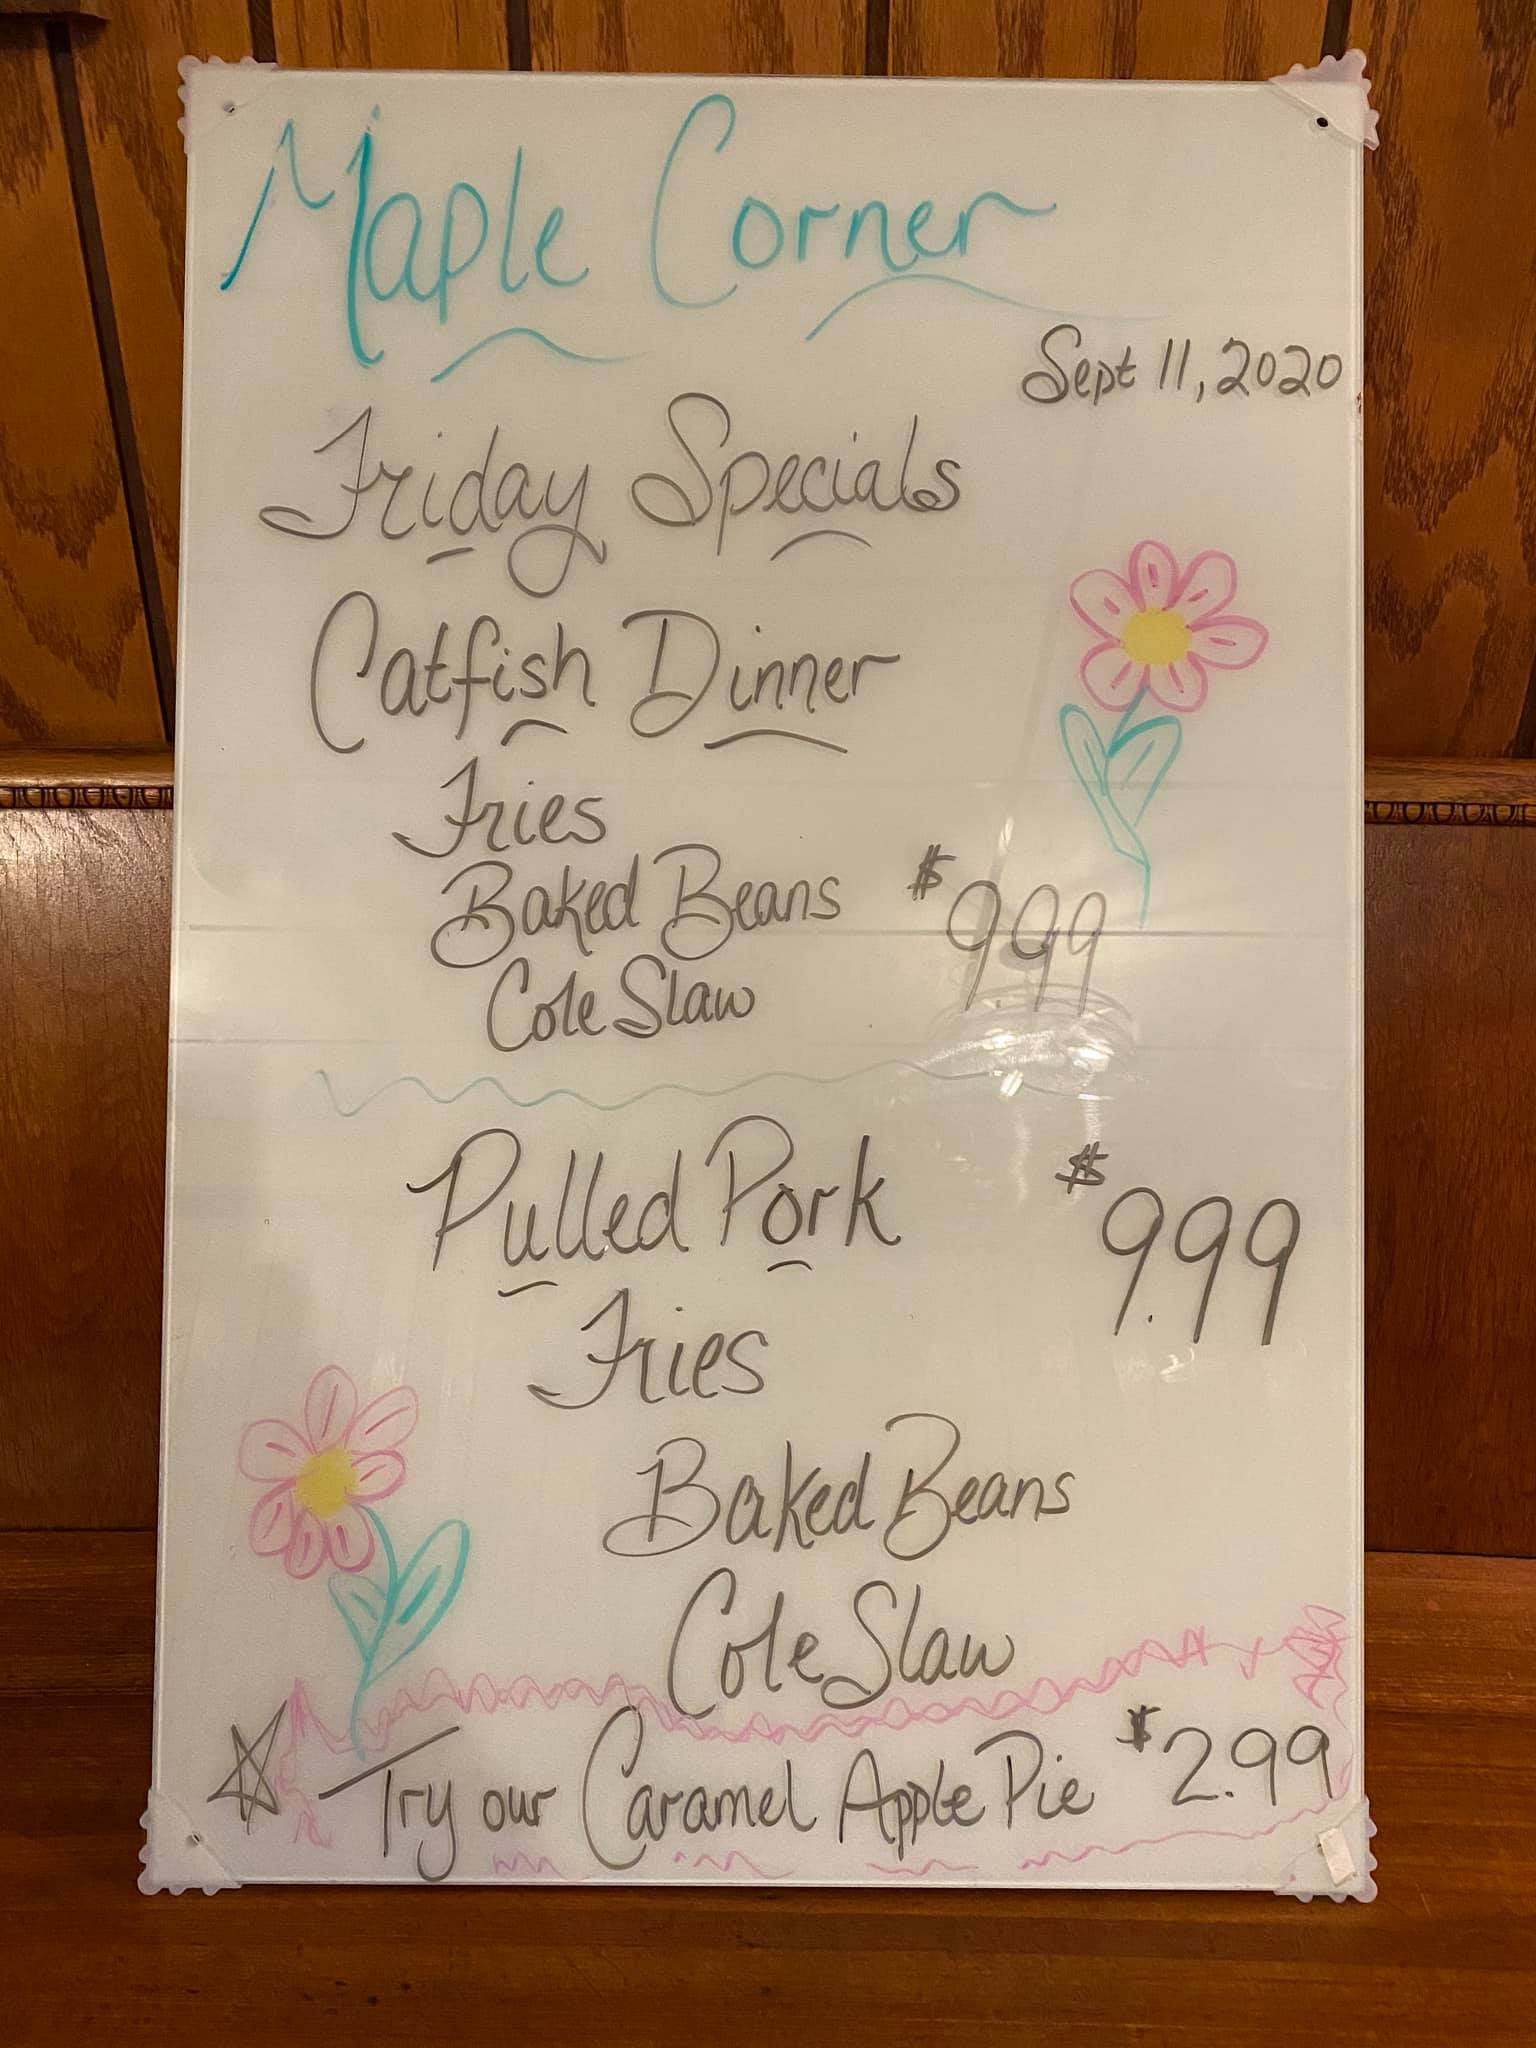 Maple Corner
Sept 11, 2020
Friday Specials
Catfish Dinner
Fries
Baked Beans $999
Cole Slaw
Pulled Pork $9.99
Fries
Baked Beans
Cole Slaw
Try our Caramel Apple Pie $2.99